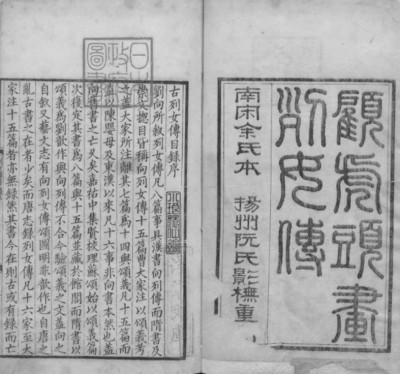 顧虎頭畫
列女傳
南宋余氏本
揚州阮氏影橅重
古列女傳目錄序
劉向所敘列女傳凡八篇事具漢書向列傳而隋書及
崇文總目皆稱向列女傳十五篇曹大家注以頌義考
之蓋大家所注離其七篇為十四與頌義凡十五篇而
益以陳嬰母及東漢以來凡十六事非向書本然也蓋
向舊書之亡久矣嘉祐中集賢校理蘇頌始以頌義篇
次復定其書為八篇與十五篇並藏於館閣而隋書以
頌義為劉歆作與向列傳不合今驗頌義之文蓋向之
自敘又藝文志有向列女傳頌圖明非歆作也自唐之
亂古書之在者少矣而唐志錄列女傳凡十六家至大
家注十五篇者亦無錄然其書今在則古或有錄而亡